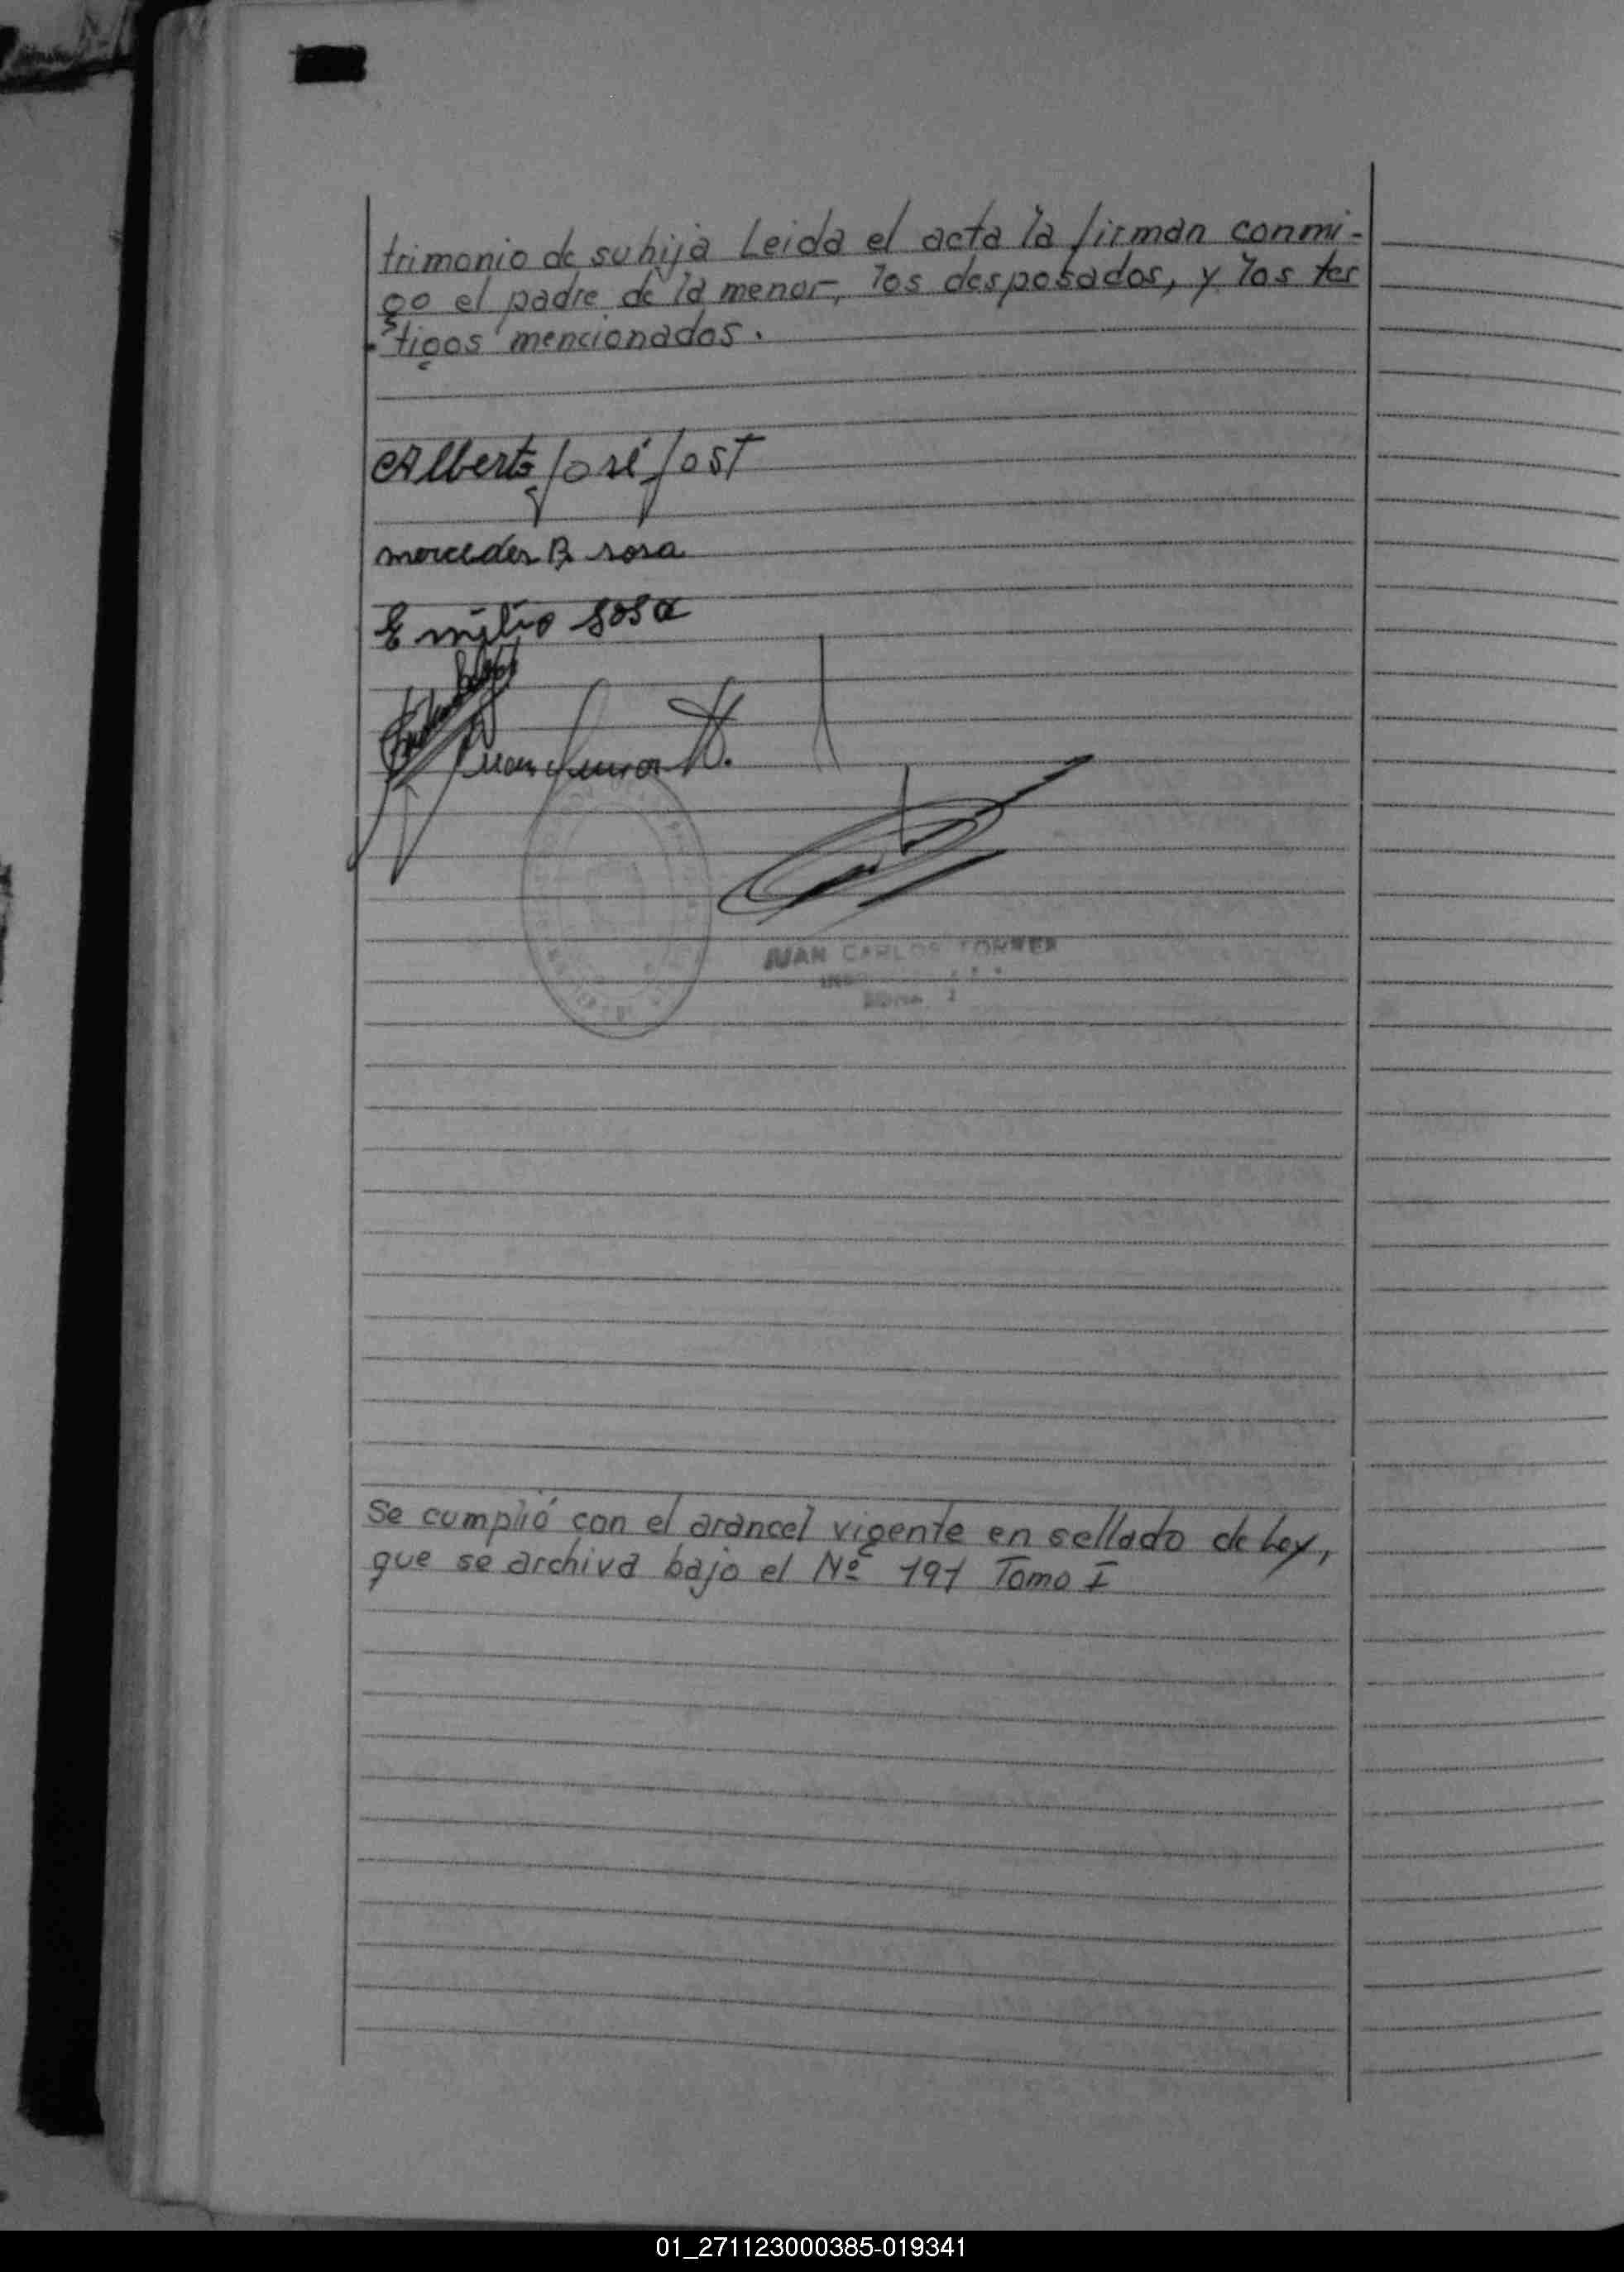 trimonio de su hija Leida el acta la firman conmi-
go el padre de la menor, los desposados, y los tes
-tigos mencionados.
Alberto José Jost
mercedes B sosa
Emilio Sosa
Juan
JUAN CARLOS TORRES
Se cumplió con el arancel vigente en sellado de Ley,
que se archiva bajo el Nº 191 Tomo I
01_271123000385-019341